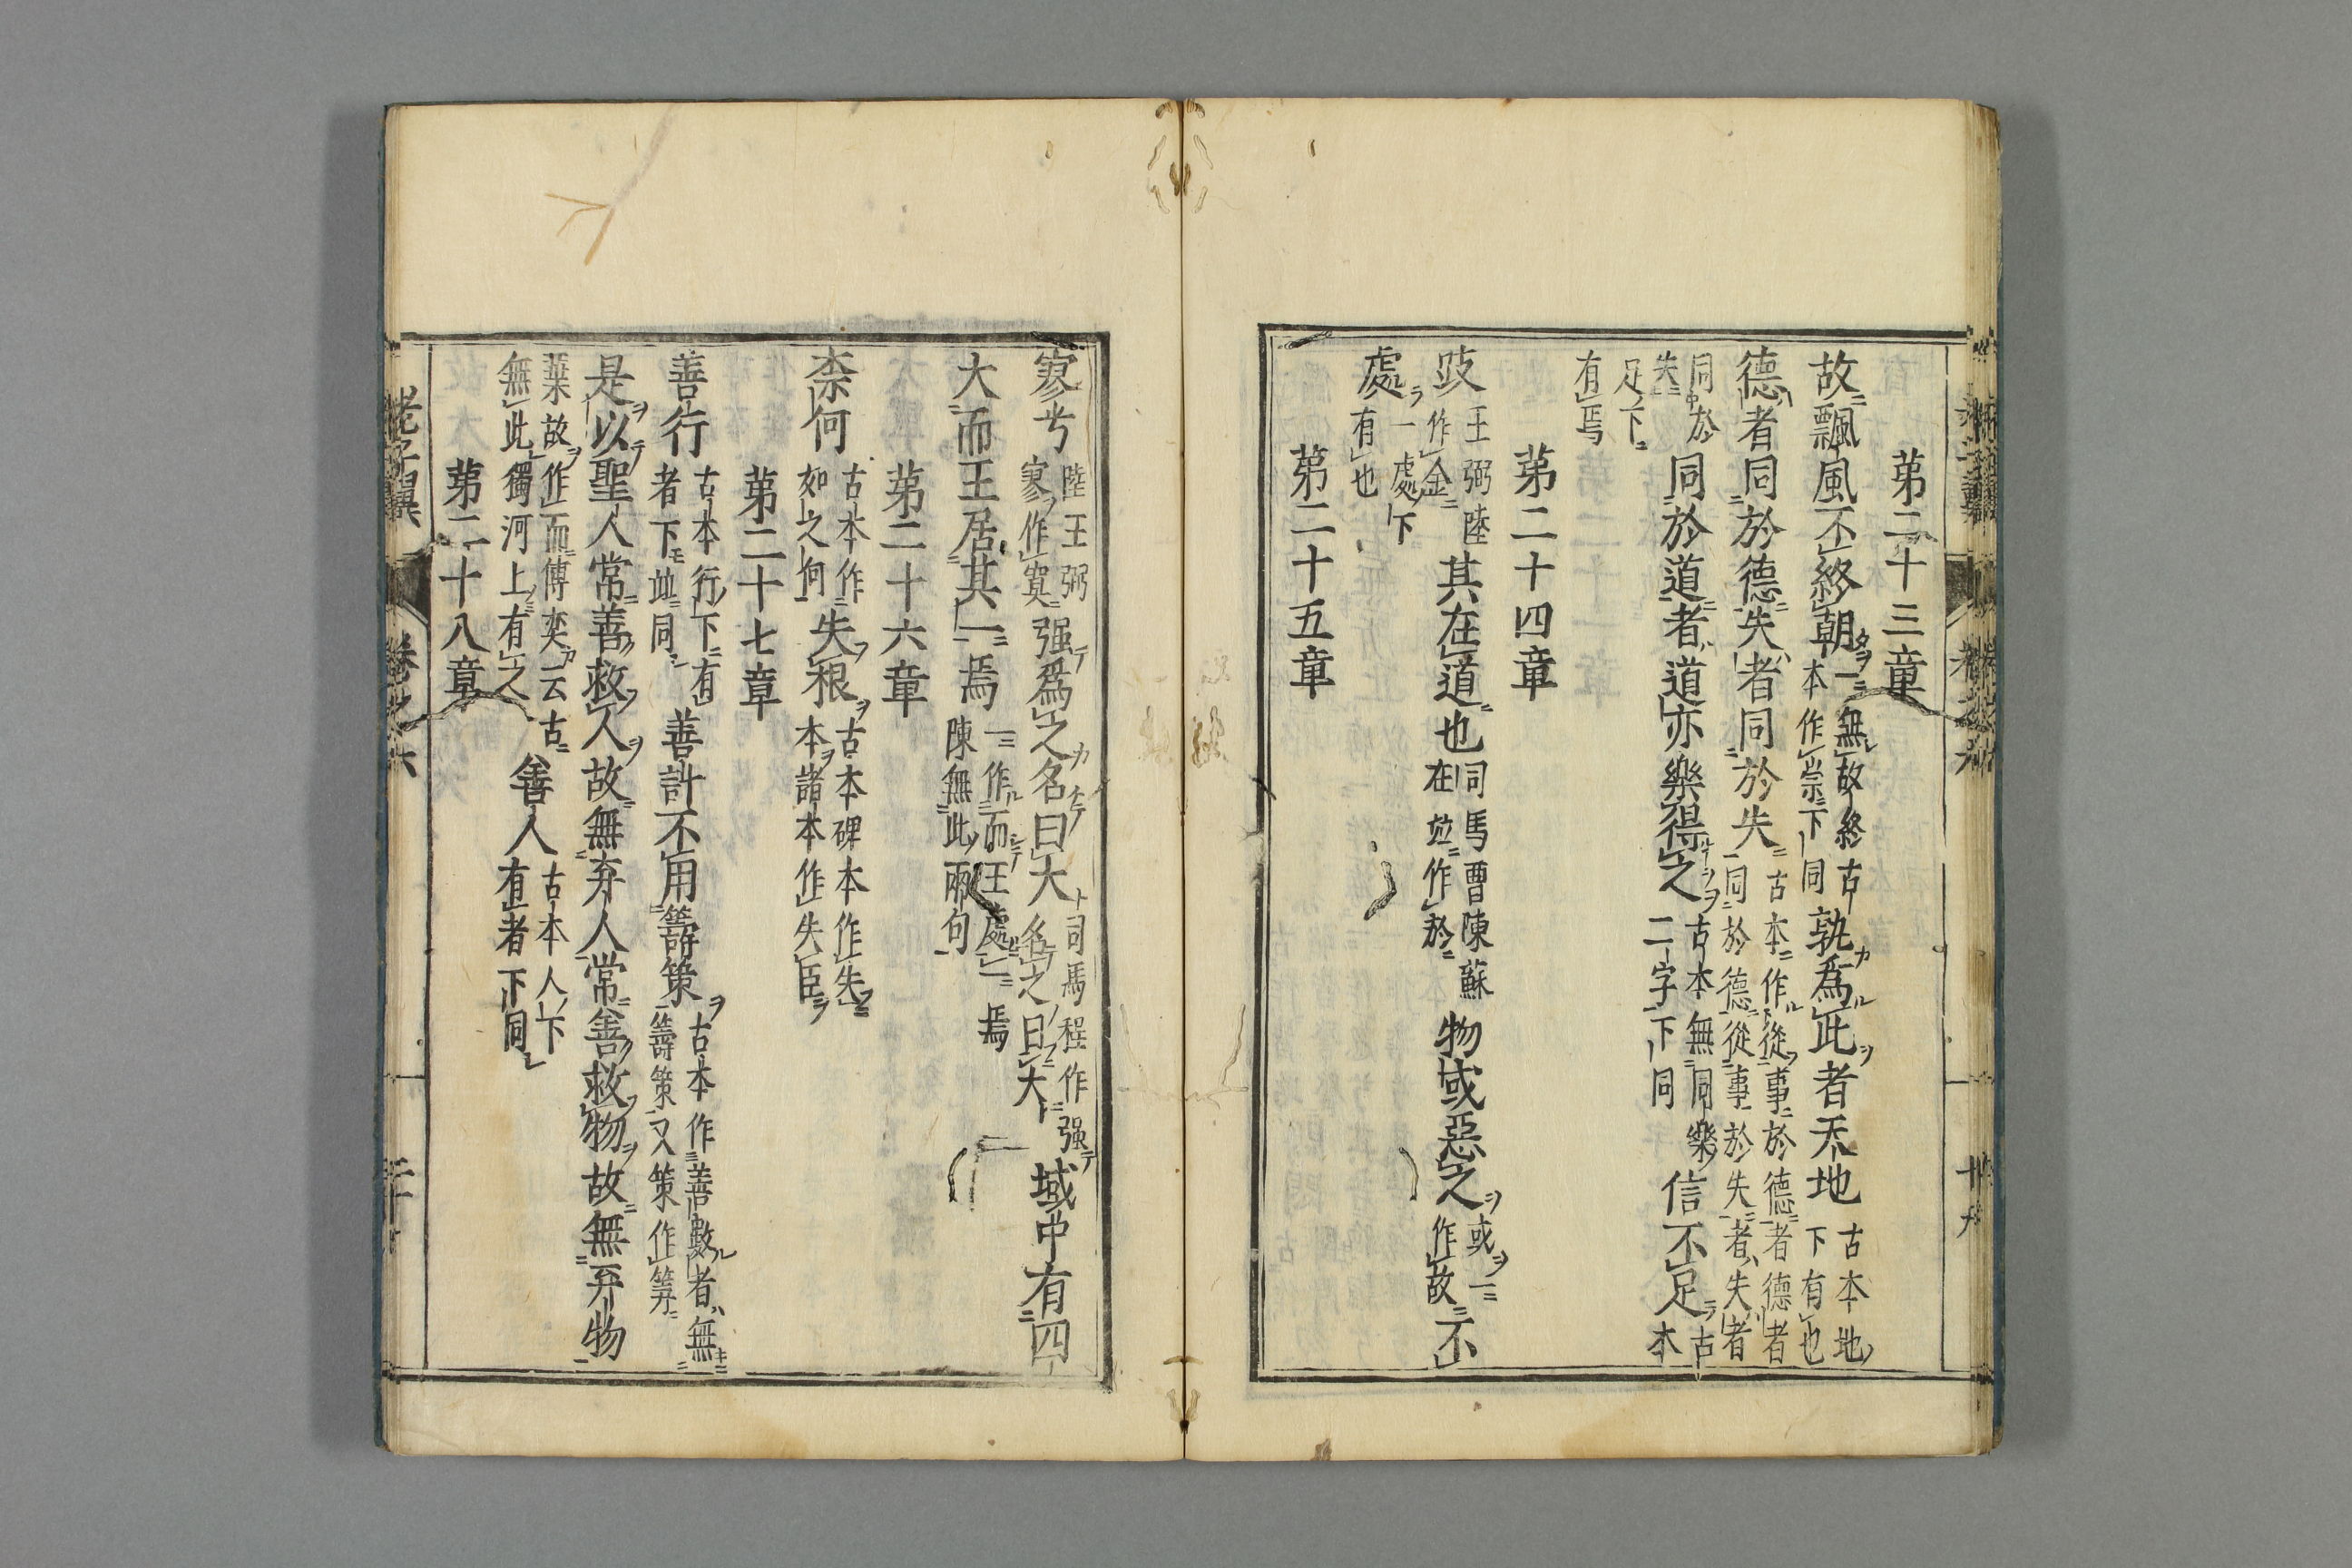 第二十三章
故飄風不終朝一本無故終古作崇下同孰為此者天地古本地下有也
德者同於德失者同於失古本作從事於德者德者同於德從事於失者失者
同於失同於道者道亦樂得之古本無同樂二字下同信不足古本
足下有焉
第二十四章
跂王弼陸作金其在道也司馬曹陳蘇在並作於物或惡之或一作故不
處一處下有也
第二十五章
寥兮陸王弼寥作寞强為之名曰大司馬程作强名之曰大域中有四
大而王居其一焉一作而王處一焉陳無此兩句
第二十六章
柰何古本作如之何失根古本碑本作失本諸本作失臣
第二十七章
善行古本行下有者下並同善計不用籌策古本作善數者無籌策又策作筭
是以聖人常善救人故無弃人常善救物故無弃物
葉故作而傅奕云古無此獨河上有之善人古本人下有者下同
第二十八章
老子翼
卷之六